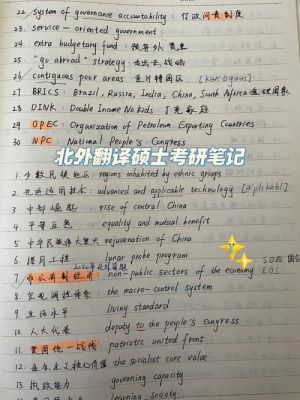 22. system of governance accountability: 行政问责制度
23. service-oriented government
24. extra budgetary fund: 预算外资金
25. "go abroad" strategy: 走出去战略
26. contiguous poor areas: 连片特困区
27. BRICS: Brazil, Russia, India, China, South Africa 金砖国家
28. DINK: Double Income No Kids 丁克家庭
29. OPEC: Organization of Petroleum Exporting Countries
30. NPC: National People's Congress
北外翻译硕士考研笔记
1. 少数民族地区: regions inhabited by ethnic groups
2. 先进适用技术: advanced and applicable technology
3. 中部崛起 rise of central China
4. 平等互惠 equality and mutual benefit
5. 中华民族伟大复兴 rejuvenation of China
6. 探月工程 lunar probe program
SOE 国企
7. 非公有制经济 non-public sectors of the economy
8. 宏观调控体系: the macro-control system
9. 生活水平 living standard
10. 人大代表 deputy to the people's congress
11. 爱国统一战线 patriotic united front
12. 社会主义核心价值 the socialist core value
13. 执政能力 governing capacity
learning society